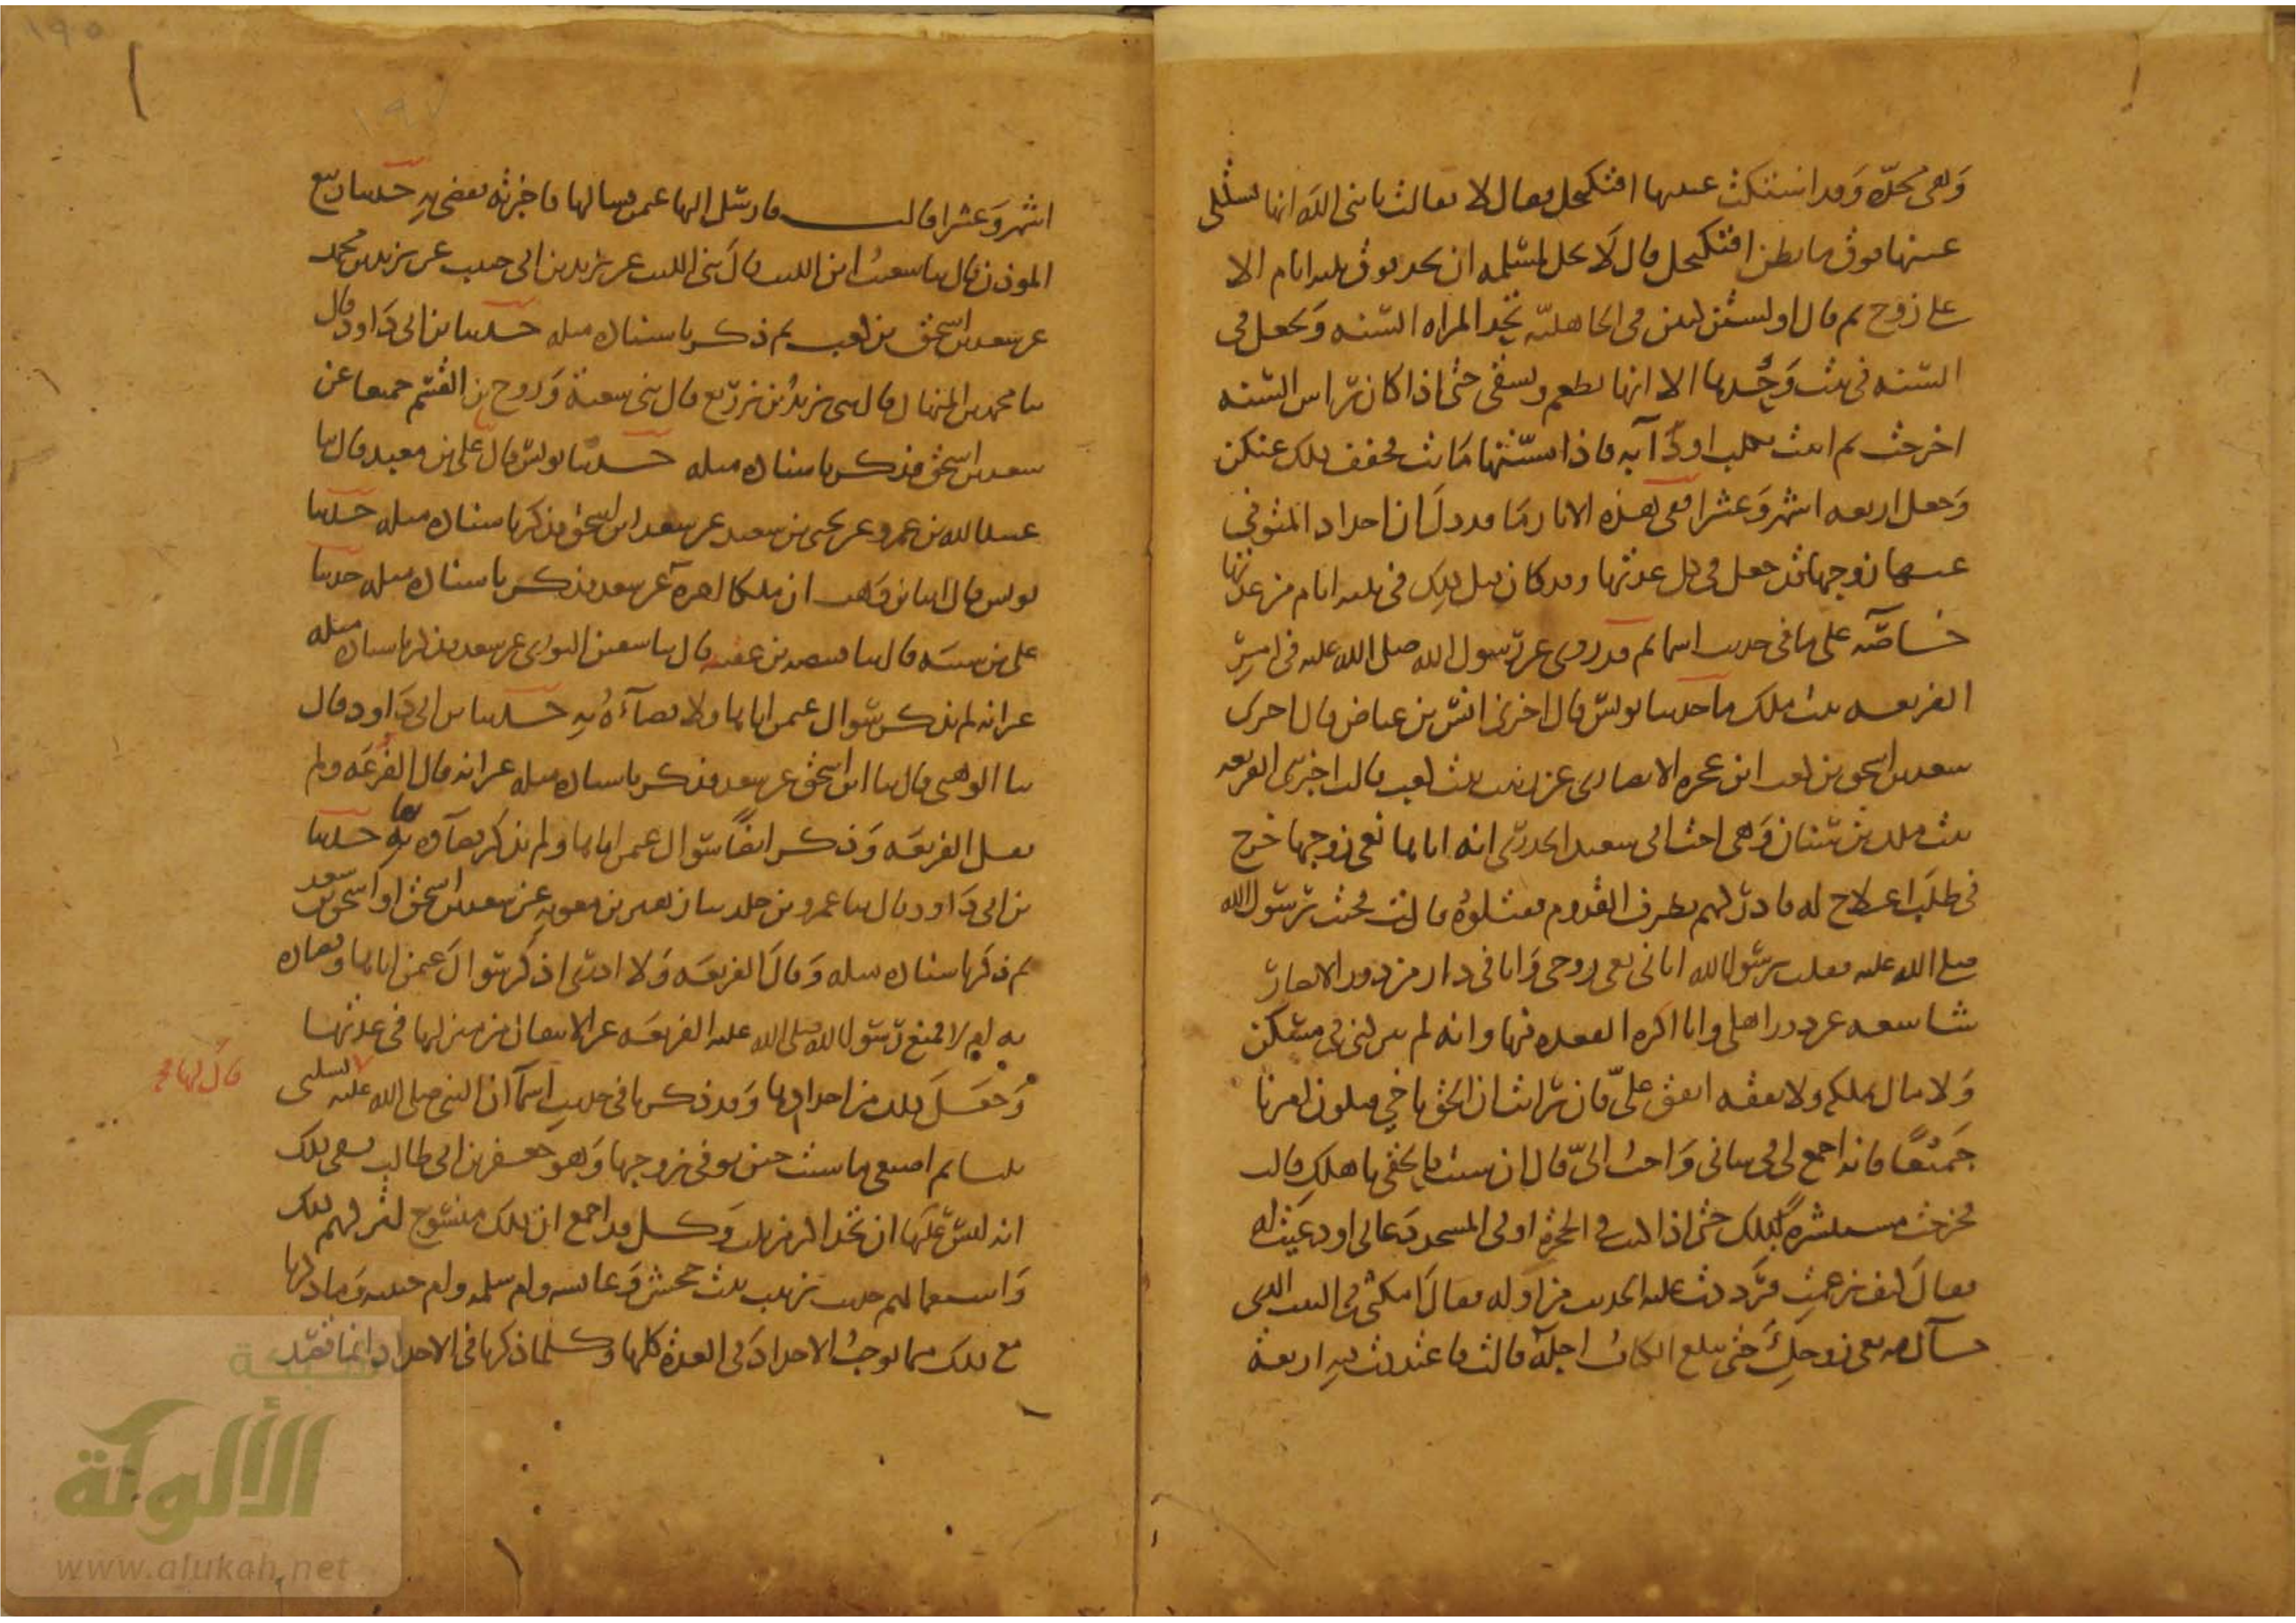 وهي محدة وقد اشتكت عينها افتكتحل فقال لا فقالت يا نبي الله انها تشتكي
عينها فوق ما يظن افتكتحل قال لا يحل لمسلمة ان تحد فوق ثلثة ايام الا
على زوج ثم قال اولستن كنتن في الجاهلية تحد المراة السنة وتجعل في
السنة في بيت وحدها الا انها تطعم وتسقى حتى اذا كان راس السنة
اخرجت ثم اتيت بكلب او دابة فاذا مستها ماتت فخفف ذلك عنكن
وجعل اربعة اشهر وعشرا ففي هذه الاثار ما قد دل ان احداد المتوفى
عنها زوجها قد جعل في كل عدتها وقد كان قبل ذلك في ثلثة ايام من عدتها
خاصة على ما في حديث اسما ثم قد روي عن رسول الله صلى الله عليه في امر
الفريعة بنت ملك ما حدثنا يونس قال اخبرني انس بن عياض قال اخبرني
سعد بن اسحق بن كعب ابن عجرة الانصاري عن زينب بنت كعب قالت اخبرتني الفريعة
بنت ملك بن سنان وهي اخت ابي سعيد الخدري انه اتاها نعي زوجها خرج
في طلب اعلاج له فادركهم بطرف القدوم فقتلوه قالت فجئت رسول الله
صلى الله عليه فقلت يرسول الله اتاني نعي زوجي وانا في دار من دور الانصار
شاسعة عن دور اهلي وانا اكره القعدة فيها وانه لم يتركني في مسكن
ولا مال يملكه ولا نفقة انفق علي فان رايت ان الحق باخي فيكون امرنا
جميعا فانه اجمع لي في شاني واحب الي قال ان شئت فالحقي باهلك قالت
فخرجت مستبشرة بذلك حتى اذا كنت في الحجرة او في المسجد دعاني او دعيت له
فقال كيف زعمت فرددت عليه الحديث من اوله فقال امكثي في البيت الذي
اتاك فيه نعي زوجك حتى يبلغ الكتاب اجله قالت فاعتددت فيه اربعة
اشهر وعشرا قالت فارسل اليها عثمن فسالها فاخبرته فقضى به حدثنا ربيع
الموذن قال ثنا شعيب ابن الليث قال ثني الليث عن يزيد بن ابي حبيب عن يزيد بن محمد
عن سعد بن اسحق بن كعب ثم ذكر باسناده مثله حدثنا بن ابي داود قال
ثنا محمد بن المنهال قال ثني يزيد بن زريع قال ثني شعبة وروح بن القسم جميعا عن
سعد بن اسحق فذكر باسناده مثله حدثنا يونس قال ثنا علي بن معبد قال ثنا
عبيد الله بن عمرو عن يحيى بن سعيد عن سعد ابن اسحق فذكر باسناده مثله حدثنا
يونس قال انبا بن وهب ان ملكا اخبره عن سعد فذكر باسناده مثله حدثنا
علي بن شيبة قال ثنا قبيصة بن عقبة قال ثنا سفين الثوري عن سعد فذكر باسناده مثله
غير انه لم يذكر سوال عثمن اياها ولا قضاءه به حدثنا بن ابي داود قال
ثنا الوهبي قال ثنا ابن اسحق عن سعد فذكر باسناده مثله غير انه قال الفرعة ولم
يقل الفريعة وذكر ايضا سوال عثمن اياها ولم يذكر قضاه به حدثنا
بن ابي داود قال ثنا عمرو بن خلد ثنا زهير بن معوية عن سعد بن اسحق او اسحق بن سعد
ثم ذكر باسناده مثله وقال الفريعة ولا ادري اذكر سوال عثمن اياها وقضاه
به ام لا فمنع رسول الله صلى الله عليه الفريعة عن الانتقال من منزلها في عدتها
وجعل ذلك من احدادها وقد ذكرنا في حديث اسما ان النبي صلى الله عليه تسلبي
قال لها
ثلثا ثم اصنعي ما شئت حين توفي زوجها وهو جعفر بن ابي طالب ففي ذلك
انه ليس عليها ان تحد اكثر من ثلث وكل قد اجمع ان ذلك منسوخ لتركهم ذلك
واستعمالهم حديث زينب بنت جحش وعائشة وام سلمة وام حبيبة وما ذكرنا
مع ذلك مما يوجب الاحداد في العدة كلها وكلما ذكرنا في الاحداد انما قصد
شبكة
الألوكة
www.alukah.net